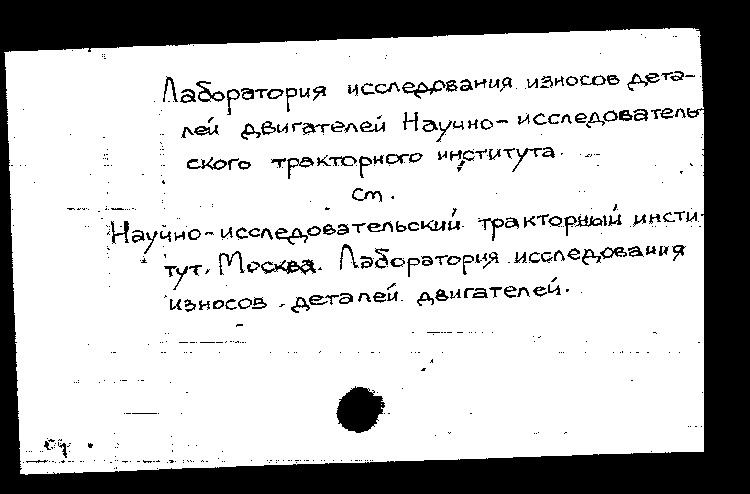 Лаборатория исследования износов дета-
лей двигателей Научно-исследователь-
ского тракторного института.
см.
Научно-исследовательский тракторный инсти-
тут. Москва. Лаборатория исследования
износов деталей двигателей.